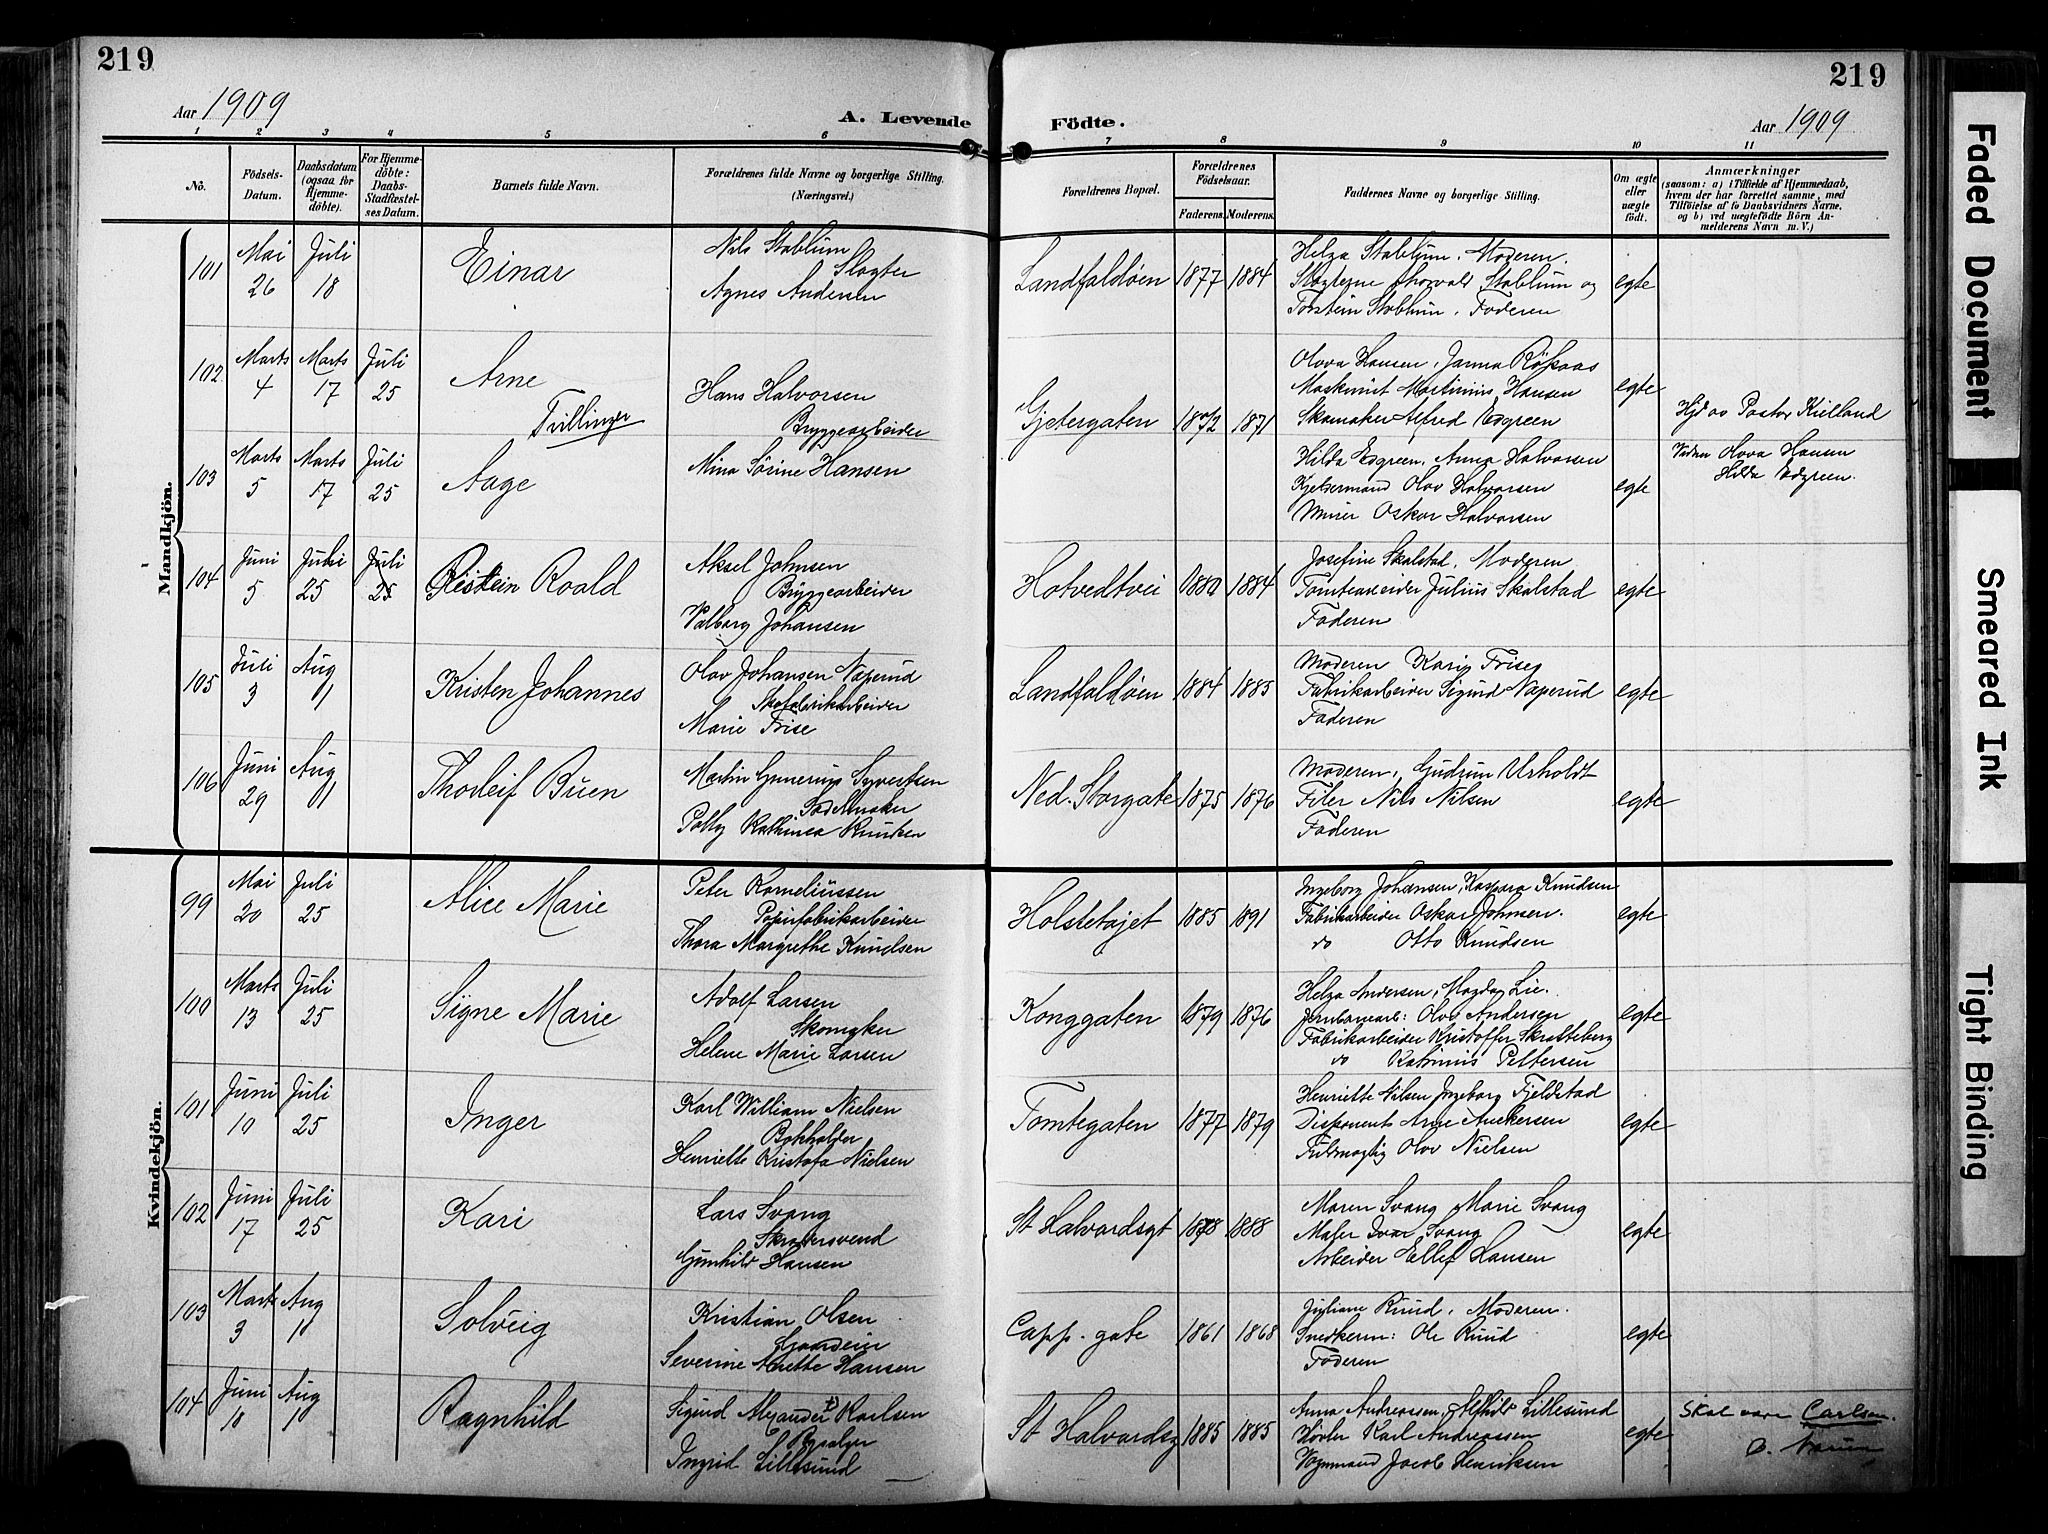 219
219
Aar 1909
A. Levende Födte.
Aar 1909
1 2 3 4 5 6 7 8 9 10 11
Nô.
Födsels-
Datum.
Daabsdatum
(ogsaa for
Hjemme-
döbte).
For Hjemme-
döbte:
Daabs-
Stadfæstel-
ses Datum.
Barnets fulde Navn.
Forældrenes fulde Navne og borgerlige Stilling.
(Næringsvei.)
Forældrenes Bopæl.
Forældrenes
Födselsaar.
Faderens. Moderens.
Faddernes Navne og borgerlige Stilling.
Om ægte
eller
uægte
födt.
Anmærkninger
(saasom: a) i Tilfælde af Hjemmedaab,
hvem der har forrettet samme, med
Tilföielse af to Daabsvidners Navne,
og b) ved uægtefödte Börn An-
melderens Navn m. V.)
Mandkjön.
101 Mai 26 Juli 18 Einar
Nils Stablum
Slagter
Agnes Andersen
Landfaldöen 1877 1884
Helga Stablum. Moderen.
Slagterne Thorvald Stablum og
Torstein Stablum. Faderen
egte
102 Marts 4 Marts 17 Juli 25 Arne
Tvillinger
Hans Halvorsen
Bryggearbeider
Mina Sörine Hansen
Gjetergaten 1872 1871
Olava Hansen, Janna
Maskinist Martinius Hansen
Skomaker Alfred Edgreen
egte
Hjd av Pastor Kielland
Vidner Olava Hansen
Hilda Edgreen.
103 Marts 5 Marts 17 Juli 25 Aage
Hilda Edgreen, Anna Halvorsen
Kjelsermand Olav Halvorsen
Murer Oskar Halvorsen
egte
104 Juni 5 Juli 25 Juli 25 Reistein Roald
Aksel Johnsen
Bryggearbeider
Valborg Johansen
Hotvedtvei 1880 1884
Josefine Skalstad, Moderen
Tomtearbeider Julius Skalstad
Faderen
egte
105 Juli 3 Aug 1 Kristen Johannes
Olav Johansen Naperud
Skofabrikarbeider
Marie Frise
Landfaldöen 1884 1885
Moderen Karin Frise
Fabrikarbeider Sigurd Naperud
Faderen
egte
106 Juni 29 Aug 1 Thorleif Buen
Martin Gunerius Syvertsen
Sadelmaker
Polly Kathinca Knutsen
Ned. Storgate 1875 1876
Moderen, Gudrun Urholdt
Filer Nils Nilsen
Faderen
egte
Kvindekjön.
99 Mai 20 Juli 25 Alice Marie
Peter Korneliussen
Papirfabrikarbeider
Thora Margrethe Knudsen
Holstetajet 1885 1891
Ingeborg Johansen, Kaspara Knudsen
Fabrikarbeider Oskar Johnsen.
do Otto Knudsen
egte
100 Marts 13 Juli 25 Signe Marie
Adolf Larsen
Skomaker
Helene Marie Larsen
Konggaten 1879 1876
Helga Andersen, Magda Lie.
Jernbanearb: Olav Andersen
Fabrikarbeider Kristoffer Skretteberg
do Pettersen
egte
101 Juni 10 Juli 25 Inger
Karl William Nielsen
Bokholder
Henriette Kristofa Nielsen
Tomtegaten 1877 1879
Henriette Nilsen Ingeborg Fjeldstad
Disponent Arne Anchersen
Fuldmægtig Olav Nielsen
egte
102 Juni 17 Juli 25 Kari
Lars Svang
Skræddersvend
Gunhild Hansen
St Halvardsgt 1878 1888
Maren Svang Marie Svang
Maler Ivar Svang
Arbeider Ellef Hansen
egte
103 Marts 3 Aug 1 Solveig
Kristian Olsen
Gaardeier
Severine Anette Hansen
Capp. gate 1861 1868
Juliane Ruud, Moderen.
Snedkerm: Ole Ruud
Faderen
egte
104 Juni 10 Aug 1 Ragnhild
Sigurd Alexander Karlsen
Ingrid Lillesund
St Halvardsg 1885 1885
Anna Andreassen, Alfhild Lillesund
Høvler Karl Andreassen
Vognmand Jacob Henriksen
egte
Skal være Carlsen.
Faded Document
Smeared Ink
Tight Binding